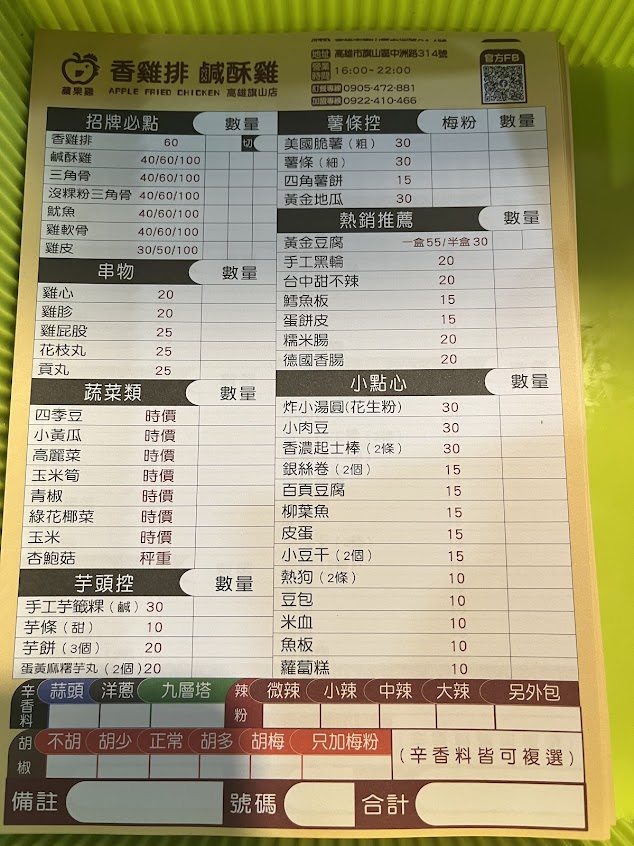 地址 高雄市旗山區中洲路314號
營業時間 16:00~22:00
訂餐專線 0905-472-881
加盟專線 0922-410-466
官方FB
蘋果雞
香雞排 鹹酥雞
APPLE FRIED CHICKEN 高雄旗山店
招牌必點 數量
香雞排 60 切
鹹酥雞 40/60/100
三角骨 40/60/100
沒粿粉三角骨 40/60/100
魷魚 40/60/100
雞軟骨 40/60/100
雞皮 30/50/100
串物 數量
雞心 20
雞胗 20
雞屁股 25
花枝丸 25
貢丸 25
蔬菜類 數量
四季豆 時價
小黃瓜 時價
高麗菜 時價
玉米筍 時價
青椒 時價
綠花椰菜 時價
玉米 時價
杏鮑菇 秤重
芋頭控 數量
手工芋籤粿(鹹) 30
芋條(甜) 10
芋餅(3個) 20
蛋黃麻糬芋丸(2個) 20
薯條控 梅粉 數量
美國脆薯(粗) 30
薯條(細) 30
四角薯餅 15
黃金地瓜 30
熱銷推薦 數量
黃金豆腐 一盒55/半盒30
手工黑輪 20
台中甜不辣 20
鱈魚板 15
蛋餅皮 15
糯米腸 20
德國香腸 20
小點心 數量
炸小湯圓(花生粉) 30
小肉豆 30
香濃起士棒(2條) 30
銀絲卷(2個) 15
百頁豆腐 15
柳葉魚 15
皮蛋 15
小豆干(2個) 15
熱狗(2條) 10
豆包 10
米血 10
魚板 10
蘿蔔糕 10
辛香料 蒜頭 洋蔥 九層塔 辣粉 微辣 小辣 中辣 大辣 另外包
胡椒 不胡 胡少 正常 胡多 胡梅 只加梅粉 (辛香料皆可複選)
備註 號碼 合計